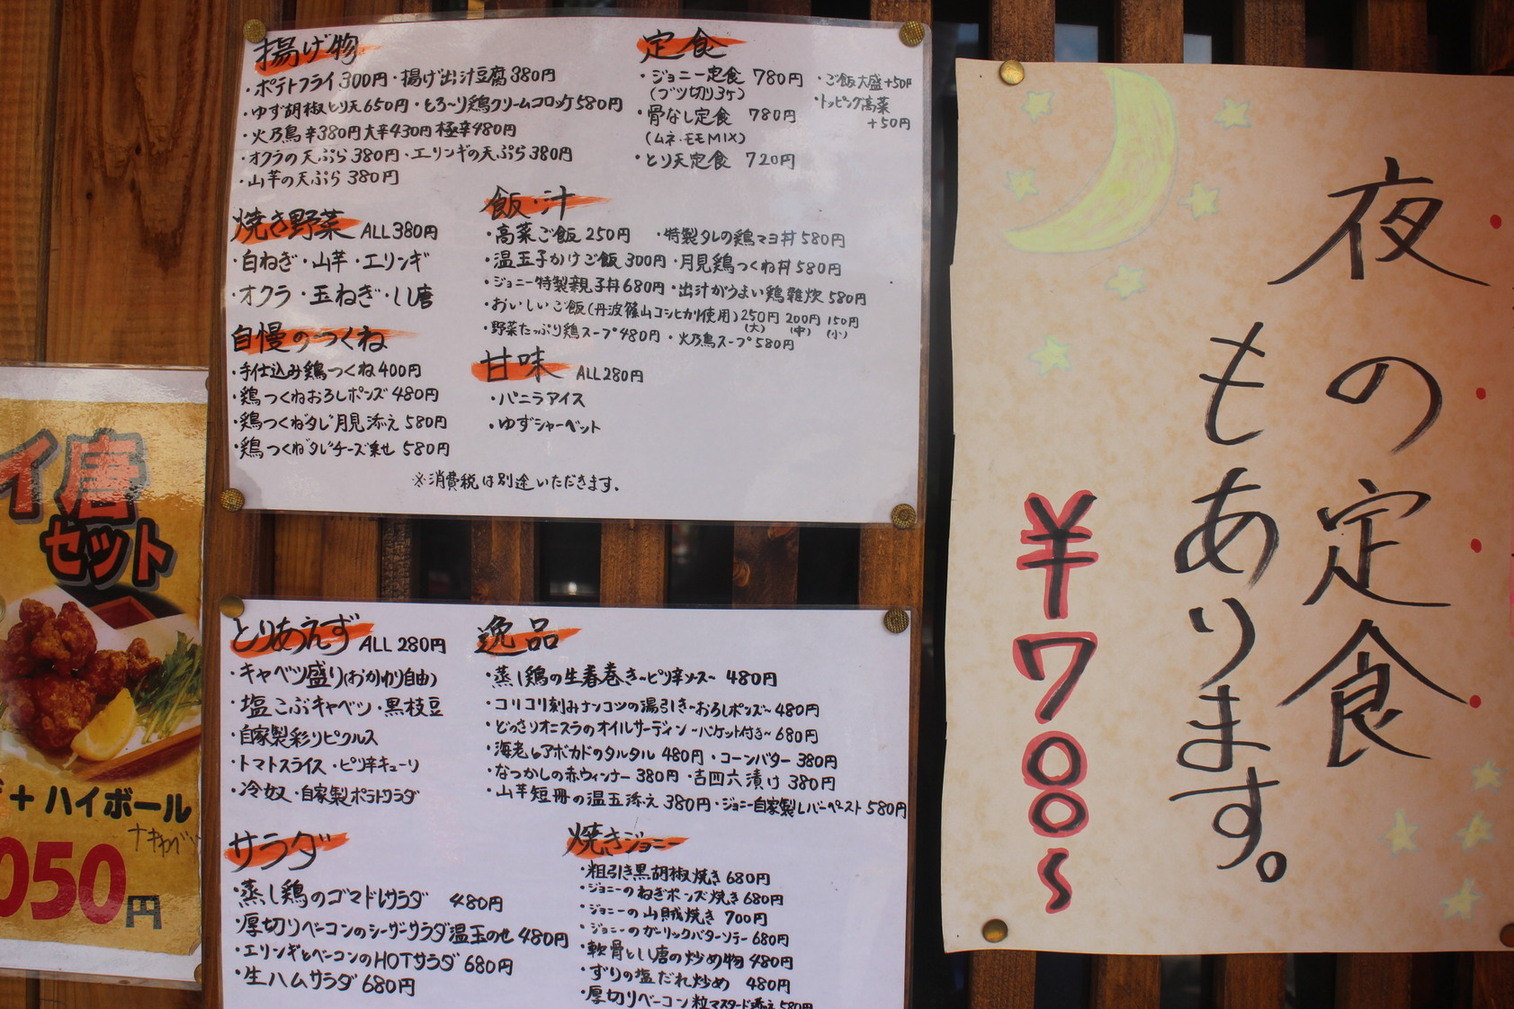 揚げ物
・ポテトフライ300円・揚げ出汁豆腐380円
・ゆず胡椒とり天650円・とろ～り鶏クリームコロッケ580円
・火乃鳥 辛380円 大辛430円 極辛480円
・オクラの天ぷら380円・エリンギの天ぷら380円
・山芋の天ぷら 380円
焼き野菜 ALL380円
・白ねぎ・山芋・エリンギ
・オクラ・玉ねぎ・しし唐
自慢のつくね
・手仕込み鶏つくね400円
・鶏つくねおろしポンズ480円
・鶏つくね"タレ"月見添え580円
・鶏つくね"タレ"チーズ乗せ 580円
定食
・ジョニー定食 780円
(ブツ切り3ケ)
・骨なし定食 780円
(ムネ・モモMIX)
・とり天定食 720円
・ご飯大盛+50円
・トッピング高菜
+50円
飯・汁
・高菜ご飯250円 ・特製タレの鶏マヨ丼580円
・温玉子かけご飯300円・月見鶏つくね丼580円
・ジョニー特製親子丼680円・出汁がうまい鶏雑炊580円
・おいしいご飯(丹波篠山コシヒカリ使用)250円 200円 150円
(大) (中) (小)
・野菜たっぷり鶏スープ480円・火乃鳥スープ580円
甘味 ALL280円
・バニラアイス
・ゆずシャーベット
※消費税は別途いただきます。
とりあえず ALL 280円
・キャベツ盛り(おかわり自由)
・塩こぶキャベツ・黒枝豆
・自家製彩りピクルス
・トマトスライス・ピリ辛キューリ
・冷奴・自家製ポテトサラダ
サラダ
・蒸し鶏のゴマドレサラダ 480円
・厚切りベーコンのシーザーサラダ温玉のせ480円
・エリンギとベーコンのHOTサラダ680円
・生ハムサラダ680円
逸品
・蒸し鶏の生春巻き～ピリ辛ソース～ 480円
・コリコリ刻みナンコツの湯引き～おろしポンズ～480円
・どっさりオニスラのオイルサーディン～バケット付き～680円
・海老とアボカドのタルタル 480円・コーンバター380円
・なつかしの赤ウィンナー380円・吉四六漬け380円
・山芋短冊の温玉添え380円・ジョニー自家製レバーペースト580円
焼きジョニー
・粗引き黒胡椒焼き680円
・ジョニーのねぎポンズ焼き680円
・ジョニーの山賊焼き 700円
・ジョニーのガーリックバターソテー680円
・軟骨としし唐の炒め物480円
・ずりの塩だれ炒め 480円
・厚切りベーコン粒マスタード添え580円
イ唐
セット
+ハイボール
050円
夜の定食
もあります。
¥700～